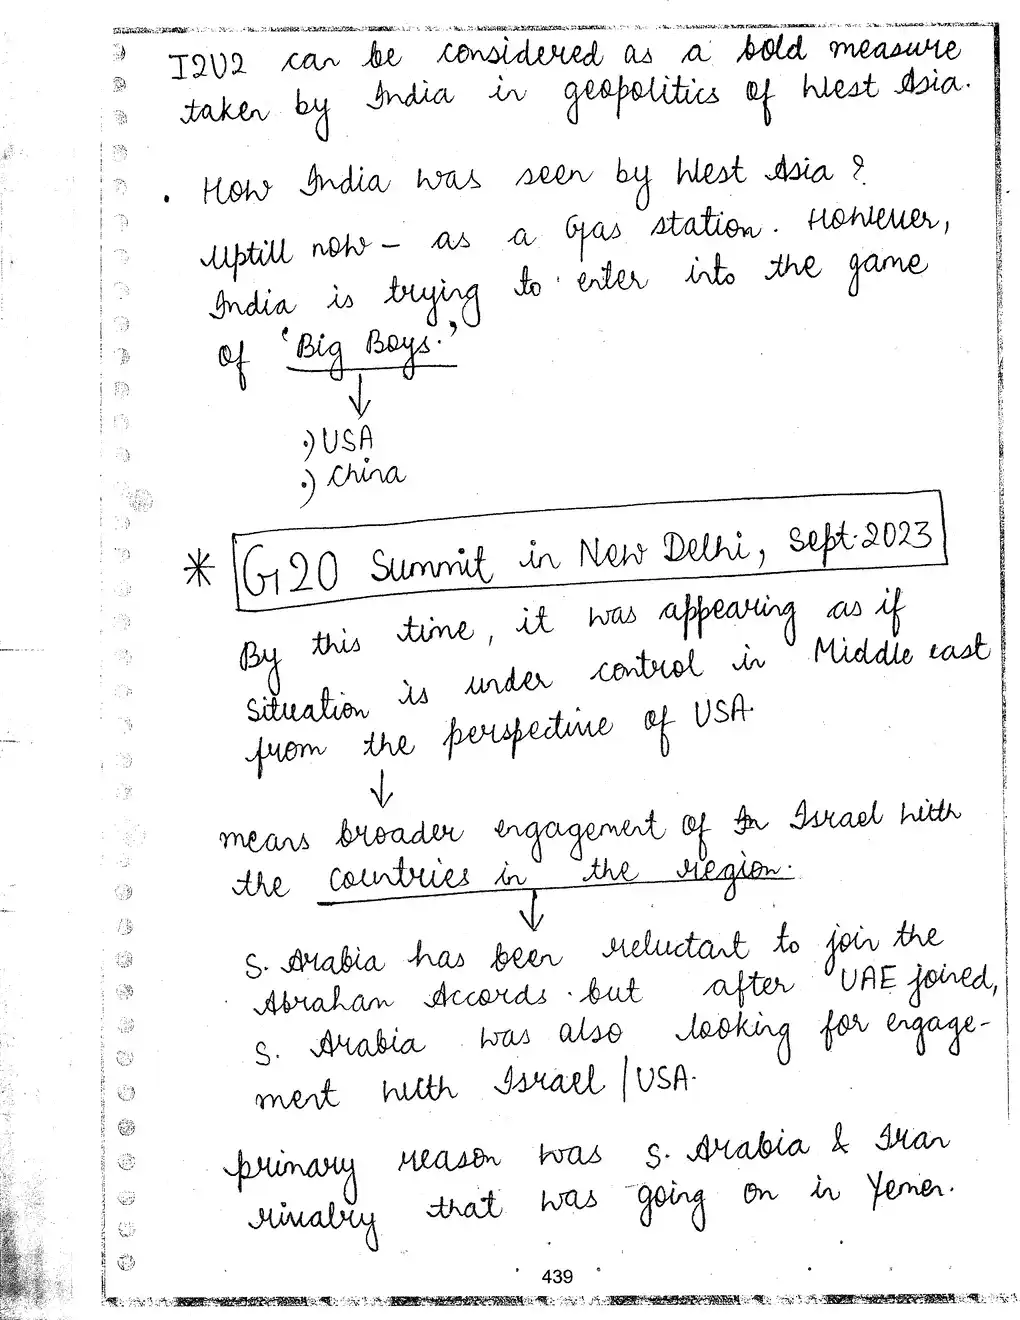 I2U2 can be considered as a bold measure
taken by India in geopolitics of West Asia.
. How India was seen by West Asia ?
Uptill now – as a Gas station. However,
India is trying to enter into the game
of 'Big Boys.'
↓
.) USA
.) China
* G20 Summit in New Delhi, Sept. 2023
By this time, it was appearing as if
situation is under control in Middle east
from the perspective of USA.
↓
means broader engagement of Israel with
the countries in the region.
↓
S. Arabia has been reluctant to join the
Abrahan Accords. but after UAE joined,
S. Arabia was also looking for engage-
ment with Israel / USA.
primary reason was S. Arabia & Iran
rivalry that was going on in Yemen.
439